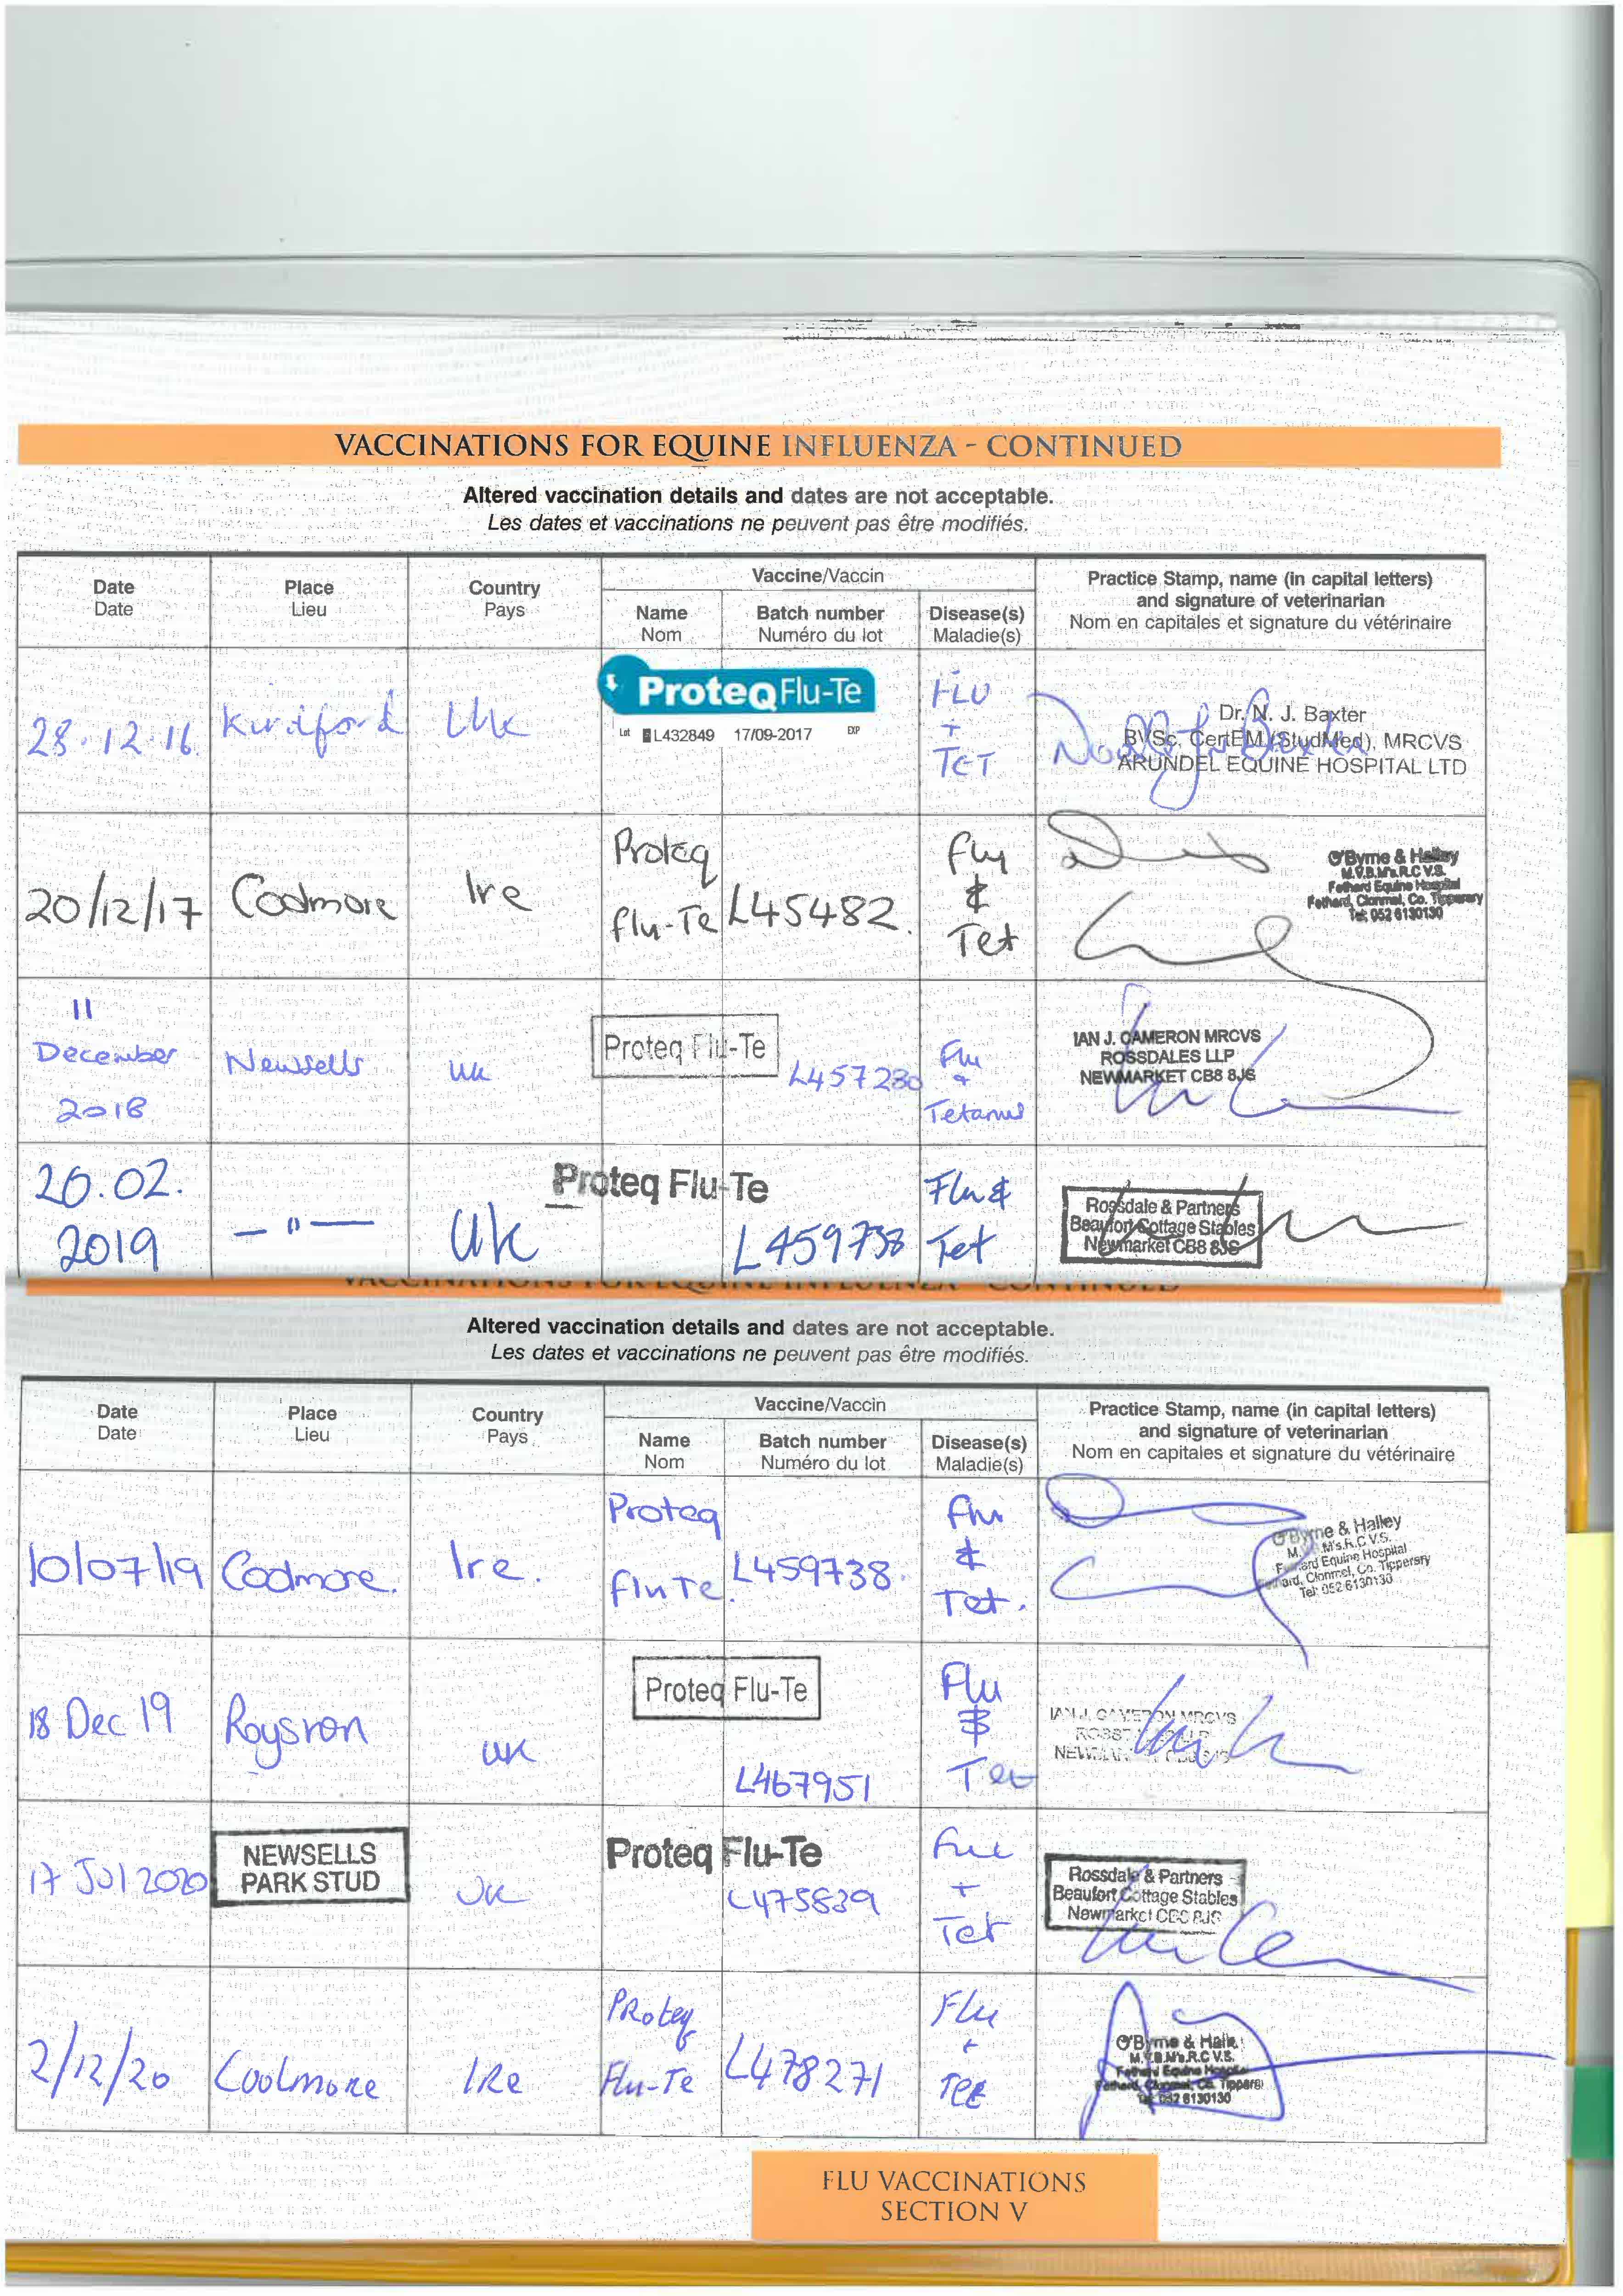 VACCINATIONS FOR EQUINE INFLUENZA - CONTINUED
Altered vaccination details and dates are not acceptable.
Les dates et vaccinations ne peuvent pas être modifiés.
Date Place Country Vaccine/Vaccin Practice Stamp, name (in capital letters)
Date Lieu Pays and signature of veterinarian
Name Batch number Disease(s) Nom en capitales et signature du vétérinaire
Nom Numéro du lot Maladie(s)
28.12.16. Kirdford UK ProteqFlu-Te FLU + TET
Lot L432849 17/09-2017 EXP
Dr. N. J. Baxter
BVSc, CertEM (StudMed), MRCVS
ARUNDEL EQUINE HOSPITAL LTD
20/12/17 Coolmore Ire Proteq flu-Te L45482. Flu & Tet
O'Byrne & Halley
M.V.B.M's.R.C.V.S.
Fethard Equine Hospital
Fethard, Clonmel, Co. Tipperary
Tel: 052 6130130
11 December 2018 Newsells UK Proteq Flu-Te L457230 Flu + Tetanus
IAN J. CAMERON MRCVS
ROSSDALES LLP
NEWMARKET CB8 8JS
20.02. 2019 — " — UK Proteq Flu-Te L459738 Flu & Tet
Rossdale & Partners
Beaufort Cottage Stables
Newmarket CB8 8JS
VACCINATIONS FOR EQUINE INFLUENZA - CONTINUED
Altered vaccination details and dates are not acceptable.
Les dates et vaccinations ne peuvent pas être modifiés.
Date Place Country Vaccine/Vaccin Practice Stamp, name (in capital letters)
Date Lieu Pays and signature of veterinarian
Name Batch number Disease(s) Nom en capitales et signature du vétérinaire
Nom Numéro du lot Maladie(s)
10/07/19 Coolmore. Ire. Proteq flu Te. L459738. Flu & Tet.
O'Byrne & Halley
M. M's.R.C.V.S.
Equine Hospital
Clonmel, Co. Tipperary
Tel: 052 6130130
18 Dec 19 Royston UK Proteq Flu-Te L467951 Flu & Tet
IAN J. CAMERON MRCVS
17 Jul 2020 NEWSELLS PARK STUD UK Proteq Flu-Te L475839 Flu + Tet
Rossdale & Partners
Beaufort Cottage Stables
Newmarket CB8 8JS
2/12/20 Coolmore IRe PRoteq Flu-Te L478271 Flu + Tet
O'Byrne & Halley
M.V.B.M's.R.C.V.S.
Fethard Equine Hospital
Fethard, Clonmel, Co. Tipperary
Tel: 052 6130130
FLU VACCINATIONS
SECTION V